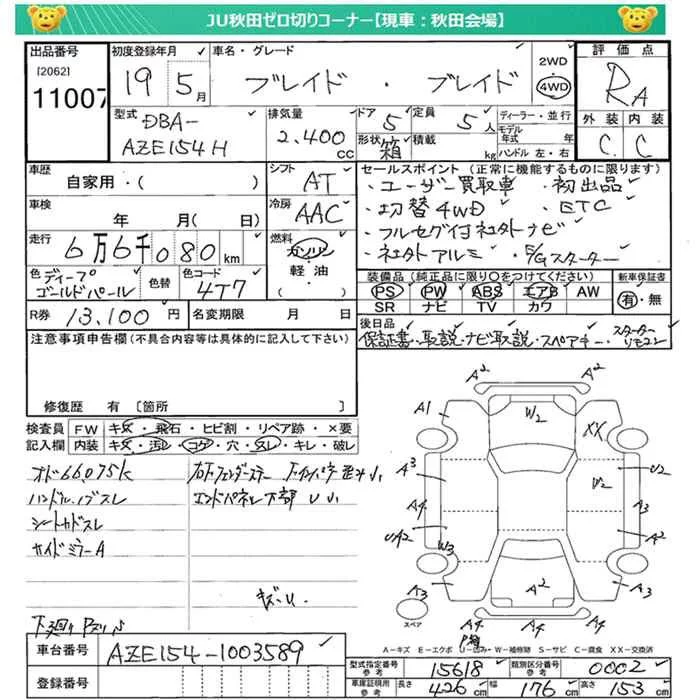 JU秋田ゼロ切りコーナー【現車：秋田会場】
出品番号
[2062]
11007
初度登録年月
19 5月
車名・グレード
ブレイド・ブレイド
2WD
4WD
評価点
RA
外装 内装
C C
型式
DBA-
AZE154H
排気量
2,400 cc
ドア 5
形状 箱
定員 5 人
積載 kg
ディーラー・並行
モデル年式 年
ハンドル 左・右
車歴
自家用・( )
シフト
AT
車検
年 月( 日)
冷房
AAC
走行
6万6千080km
燃料
ガソリン
軽油
( )
色 ディープゴールドパール
色替
色コード
4T7
R券 13,100円
名変期限 月 日
セールスポイント(正常に機能するものに限ります)
・ユーザー買取車・初出品
・切替4WD・ETC
・フルセグ付社外ナビ
・社外アルミ・E/Gスターター
装備品(純正品に限り○をつけてください)
PS PW ABS エアB AW
SR ナビ TV カワ
新車保証書
有・無
後日品
保証書・取説・ナビ取説・スペアキー・スターターリモコン
注意事項申告欄(不具合内容等は具体的に記入して下さい)
修復歴 有 [箇所
検査員記入欄
FW キズ・飛石・ヒビ割・リペア跡・×要
内装 キズ・汚レ・コゲ・穴・スレ・キレ・破レ
ハンドル、ノブスレ
シートカドスレ
サイドミラーA
エンドパネル下部 U小
キズ・U
A2
A1
W2
XX
A3
U2
W2
A4
A3
UA2
W3
A2
A3
A2
A3
A4
A4
A4
A2
スペア
A－キズ E－エクボ U－凹み W－補修跡 S－サビ C－腐食 XX－交換済
車台番号
AZE154-1003589
登録番号
型式指定番号 参考 15618
類別区分番号 参考 0002
車庫証明用 参考 長さ 426cm 幅 176cm 高さ 153cm